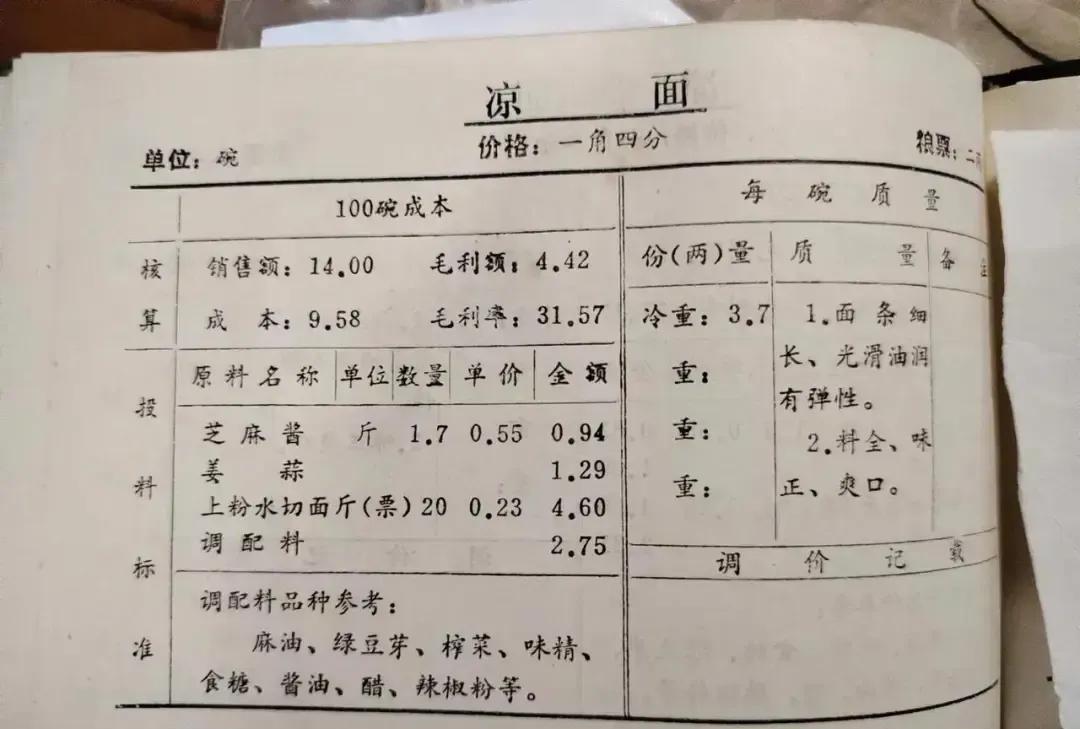 凉 面
单位：碗 价格：一角四分 粮票：二
100碗成本
核算
销售额：14.00 毛利额：4.42
成 本：9.58 毛利率：31.57
投料标准
原料名称 单位 数量 单价 金额
芝麻酱 斤 1.7 0.55 0.94
姜 蒜 1.29
上粉水切面 斤(票) 20 0.23 4.60
调配料 2.75
调配料品种参考：
麻油、绿豆芽、榨菜、味精、
食糖、酱油、醋、辣椒粉等。
每碗质量
份(两)量 质 量 备
冷重：3.7
重：
重：
重：
1.面条细
长、光滑油润
有弹性。
2.料全、味
正、爽口。
调价记载